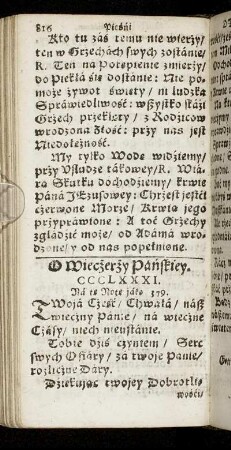 816 Pieśńi
Kto tu záś temu nie wierzy/
ten w Grzechách swych zostánie/
R. Ten ná Potępienie zmierzy/
do Piekłá się dostánie: Nie po-
może żywot święty/ ni ludzka
Spráwiedliwość: wszystko skáźi
Grzech przeklęty/ z Rodzicow
wrodzona Złość: przy nas jest
Niedołężność.
My tylko Wodę widźiemy/
przy Usłudze tákowey/R. Wiá-
rą Skutku dochodźiemy/ krwie
Páná JEzusowey: Chrzest jestći
czerwone Morze/ Krwią jego
przypráwione: A toć Grzechy
zgładźić może/ od Adámá wro-
dzone/ y od nas popełnione.
O Wieczerzy Páńskiey.
CCCLXXXI.
Ná tę Notę jáko 379.
TWojá Cześć/ Chwałá/ nász
wieczny Pánie/ ná wieczne
Czásy/ niech nieustánie.
Tobie dźiś czyniem/ Serc
swych Ofiáry/ zá twoje Pánie/
rozliczne Dáry.
Dźiękując twojey Dobrotli-
wośći/